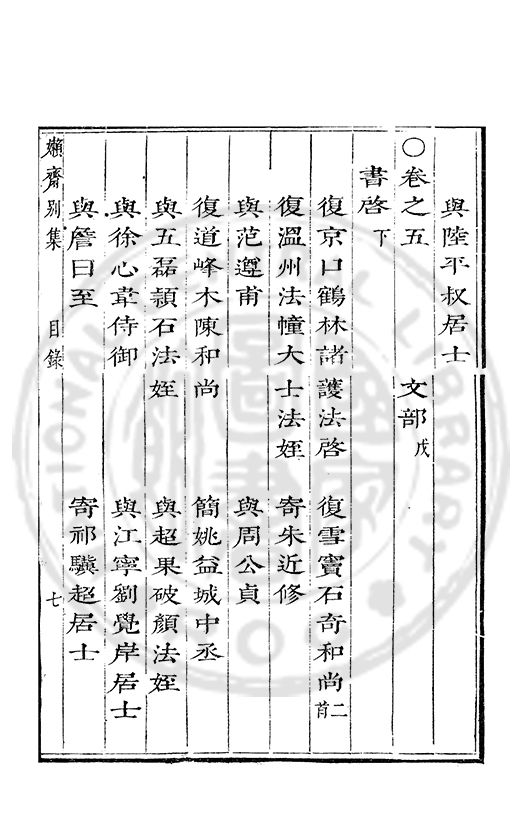 與陸平叔居士
○卷之五 文部戊
書啓下
復京口鶴林諸護法啓 復雪竇石奇和尚二首
復溫州法幢大士法姪 寄朱近修
與范遵甫 與周公貞
復道峰木陳和尚 簡姚益城中丞
與五磊頴石法姪 與超果破顏法姪
與徐心韋侍御 與江寧劉覺岸居士
與詹曰至 寄祁驥超居士
嬾齋別集 目錄 七